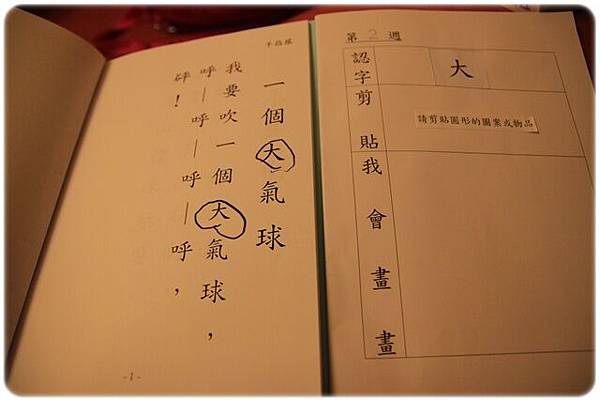 一個大氣球
我要吹一個大氣球，
呼—呼—呼—呼，
砰！
-1-
第2週
認字
大
剪貼
請剪貼圓形的圖案或物品
我會畫畫